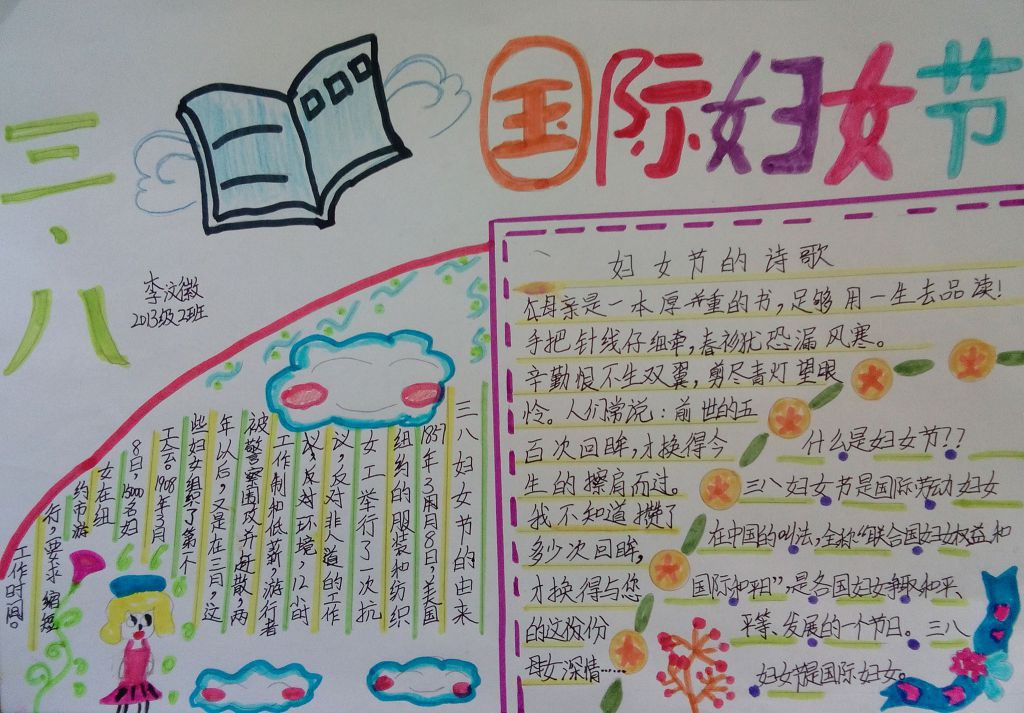 三·八
国际妇女节
李汶徽
2013级2班
三八妇女节的由来
1857年3月8日,美国
纽约的服装和纺织
女工举行了一次抗
议,反对非人道的工作
环境,12小时
工作制和低薪,游行者
被警察围攻并赶散,两
年以后,又是在三月,这
些妇女组织了第一个
工会。1908年3月
8日,15000名妇
女在纽
约市游
行,要求缩短
工作时间。
妇女节的诗歌
母亲是一本厚重的书,足够用一生去品读!
手把针线仔细牵,春衫犹恐漏风寒。
辛勤恨不生双翼,剪尽青灯望眼
怜。人们常说:前世的五
百次回眸,才换得今
生的擦肩而过。
我不知道攒了
多少次回眸,
才换得与您
的这份份
母女深情……
什么是妇女节??
三八妇女节是国际劳动妇女
在中国的叫法,全称“联合国妇女权益和
国际和平日”,是各国妇女争取和平、
平等、发展的一个节日。三八
妇女节是国际妇女。